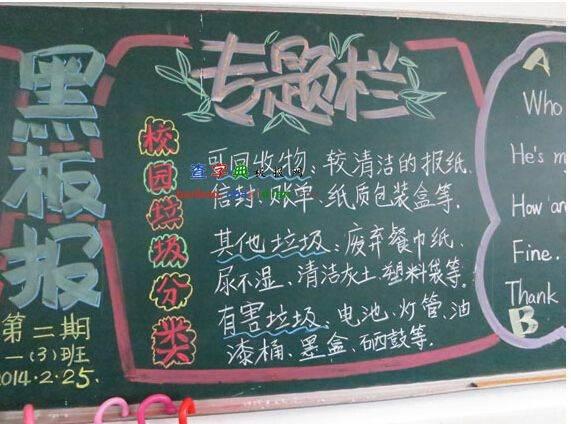 黑板报
第二期
一(3)班
2014.2.25.
专题栏
校园垃圾分类
可回收物:较清洁的报纸、
信封、传单、纸质包装盒等.
其他垃圾:废弃餐巾纸、
尿不湿、清洁灰土、塑料袋等.
有害垃圾:电池、灯管、油
漆桶、墨盒、硒鼓等.
查字典
A
Who
He's m
How ar
Fine.
Thank
B